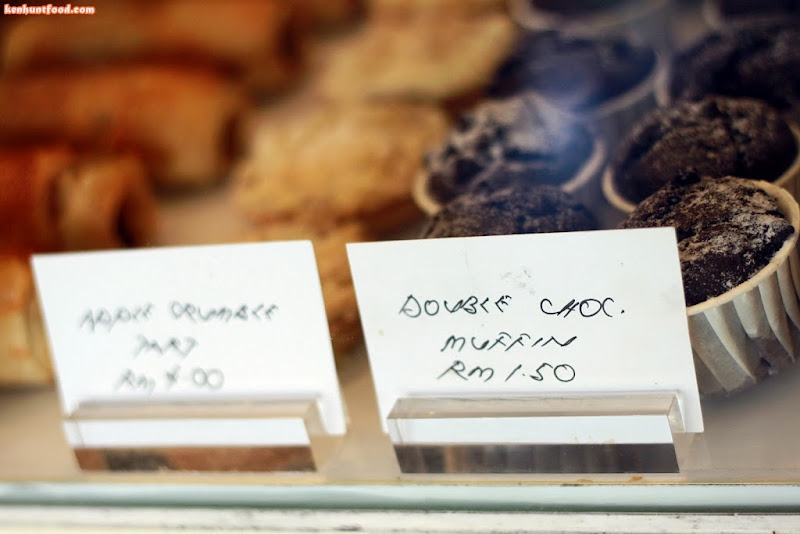 kenhuntfood.com
APPLE CRUMBLE
TART
RM 4.00
DOUBLE CHOC.
MUFFIN
RM 1.50